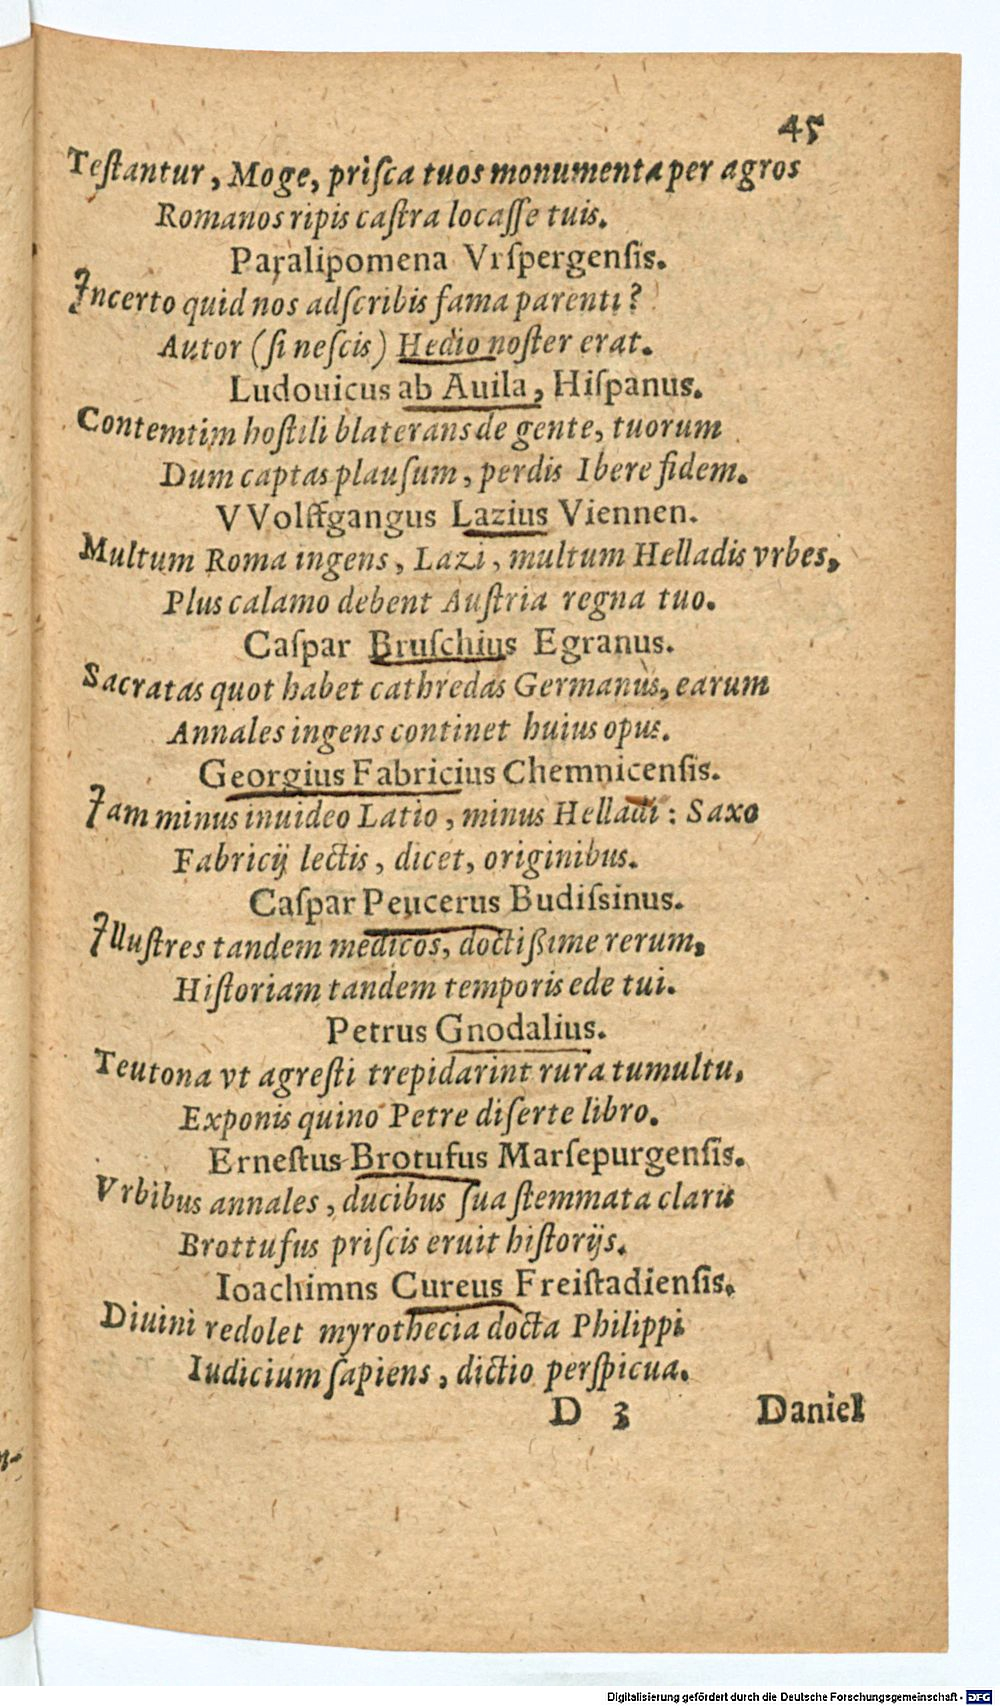 45
Teſtantur, Moge, priſca tuos monumenta per agros
Romanos ripis caſtra locaſſe tuis.
Paralipomena Vrſpergenſis.
Incerto quid nos adſcribis fama parenti?
Autor (ſi neſcis) Hedio noſter erat.
Ludouicus ab Auila, Hiſpanus.
Contemtim hoſtili blaterans de gente, tuorum
Dum captas plauſum, perdis Ibere fidem.
VVolffgangus Lazius Viennen.
Multum Roma ingens, Lazi, multum Helladis vrbes,
Plus calamo debent Auſtria regna tuo.
Caſpar Bruſchius Egranus.
Sacratas quot habet cathredas Germanus, earum
Annales ingens continet huius opus.
Georgius Fabricius Chemnicenſis.
Iam minus inuideo Latio, minus Helladi: Saxo
Fabricij lectis, dicet, originibus.
Caſpar Peucerus Budiſsinus.
Illuſtres tandem medicos, doctißime rerum,
Hiſtoriam tandem temporis ede tui.
Petrus Gnodalius.
Teutona vt agreſti trepidarint rura tumultu,
Exponis quino Petre diſerte libro.
Erneſtus Brotufus Marſepurgenſis.
Vrbibus annales, ducibus ſua ſtemmata claris
Brottufus priſcis eruit hiſtorijs.
Ioachimns Cureus Freiſtadienſis.
Diuini redolet myrothecia docta Philippi
Iudicium ſapiens, dictio perſpicua.
D 3 Daniel
Digitalisierung gefördert durch die Deutsche Forschungsgemeinschaft - DFG